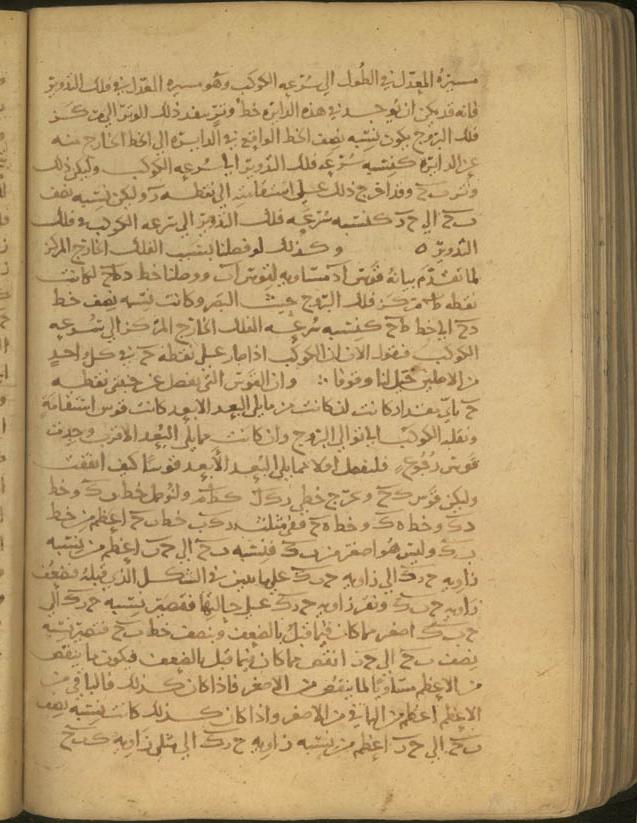 مسيره المعدل في الطول الى سرعه الكوكب وهو مسيره المعدل في فلك التدوير
فانه قد يمكن ان يوجد في هذه الدايره خط وتر بعد ذلك الوتر الى مركز
فلك البروج يكون نسبه نصف الخط الواقع في الدايره الى الخط الخارج منه
عن الدايره كنسبه سرعه فلك التدوير الى سرعه الكوكب وليكن ذلك
وتر ب ح وقد اخرج ذلك على استقامته الى نقطه ر وليكن نسبه نصف
ب ح الى ح ر كنسبه سرعه فلك التدوير الى سرعه الكوكب في فلك
التدوير ٥ وكذلك لو فصلنا بسبب الفلك الخارج المركز
لما تقدم بيانه قوس اد مساويه لقوس اب ووصلنا خط د ط ح لكانت
نقطه ط مركز فلك البروج حيث البصر وكانت نسبه نصف خط
د ح الى خط ط ح كنسبه سرعه الفلك الخارج المركز الى سرعه
الكوكب فنقول الان ان الكوكب اذا صار على نقطه ح في كل واحد
من الاصلين خيل لنا وقوفا ∴ وان القوس التي يفصل عن جنبتي نقطه
ح باي مقدار كانت ان كانت مما يلي البعد الابعد كانت قوس استقامه
ونقله الكوكب الى توالي البروج وان كانت مما يلي البعد الاقرب وجدت
قوس رجوع فلنفصل اولا مما يلي البعد الابعد قوسا كيف اتفقت
وليكن قوس ك ح ونخرج خطي ر ك ل ك ط م ولنوصل خط ب ك وخط
د ك وخط ه ك وخط ه ح ففي مثلث ر ك ب خط ب ح اعظم من خط
ب ك وليس هو اصغر من ب ك فنسبه ب ح الى ح ر اعظم من نسبه
زاويه ح ر ك الى زاويه ح ب ك على ما تبين في الشكل الذي قبله فضعف
زاويه ح ب ك ونقر زاويه ح ر ك على حالتها فتصير نسبه ح ر ك الى
ح ب ك اصغر مما كان فيما قبل بالضعف ونصف خط ب ح فتصير نسبه
نصف ب ح الى ح ر انقص مما كان فيما قبل بالضعف فيكون ما ينقص
من الاعظم مساويا لما ينقص من الاصغر فاذا كان كذلك فالباقي من
الاعظم اعظم من الباقي من الاصغر واذا كان كذلك كانت نسبه نصف
ب ح الى ح ر اعظم من نسبه زاويه ح ر ك الى مثلي زاويه ك ب ح